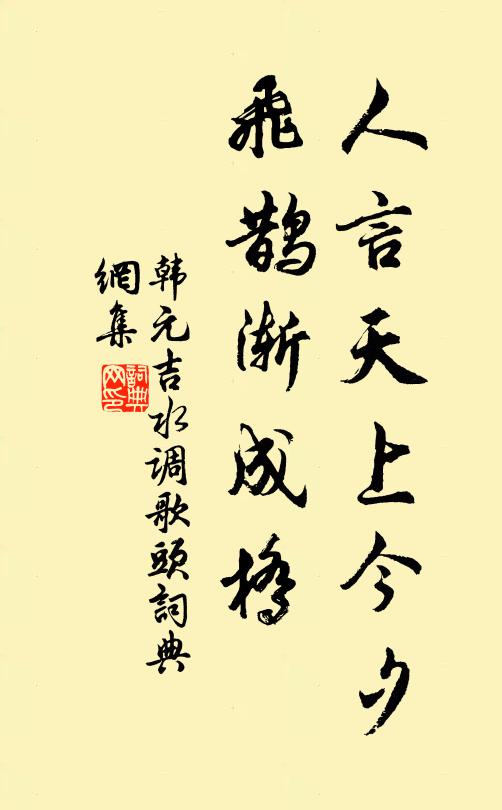 人言天上今夕
飛鵲漸成橋
韩元吉水调歌頭詞典
網集
詞典
网印